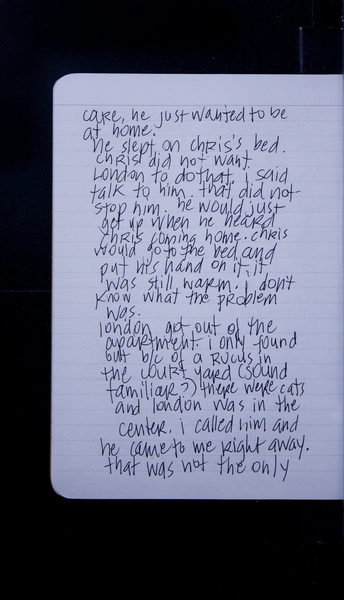 care, he just wanted to be
at home.
he slept on chris's bed.
chris did not want
london to do that. i said
talk to him. that did not
stop him. he would just
get up when he heard
chris coming home. chris
would go to the bed and
put his hand on it, it
was still warm. i don't
know what the problem
was.
london got out of the
apartment. i only found
out b/c of a rucus in
the court yard (sound
familiar?) there were cats
and london was in the
center. i called him and
he came to me right away.
that was not the only